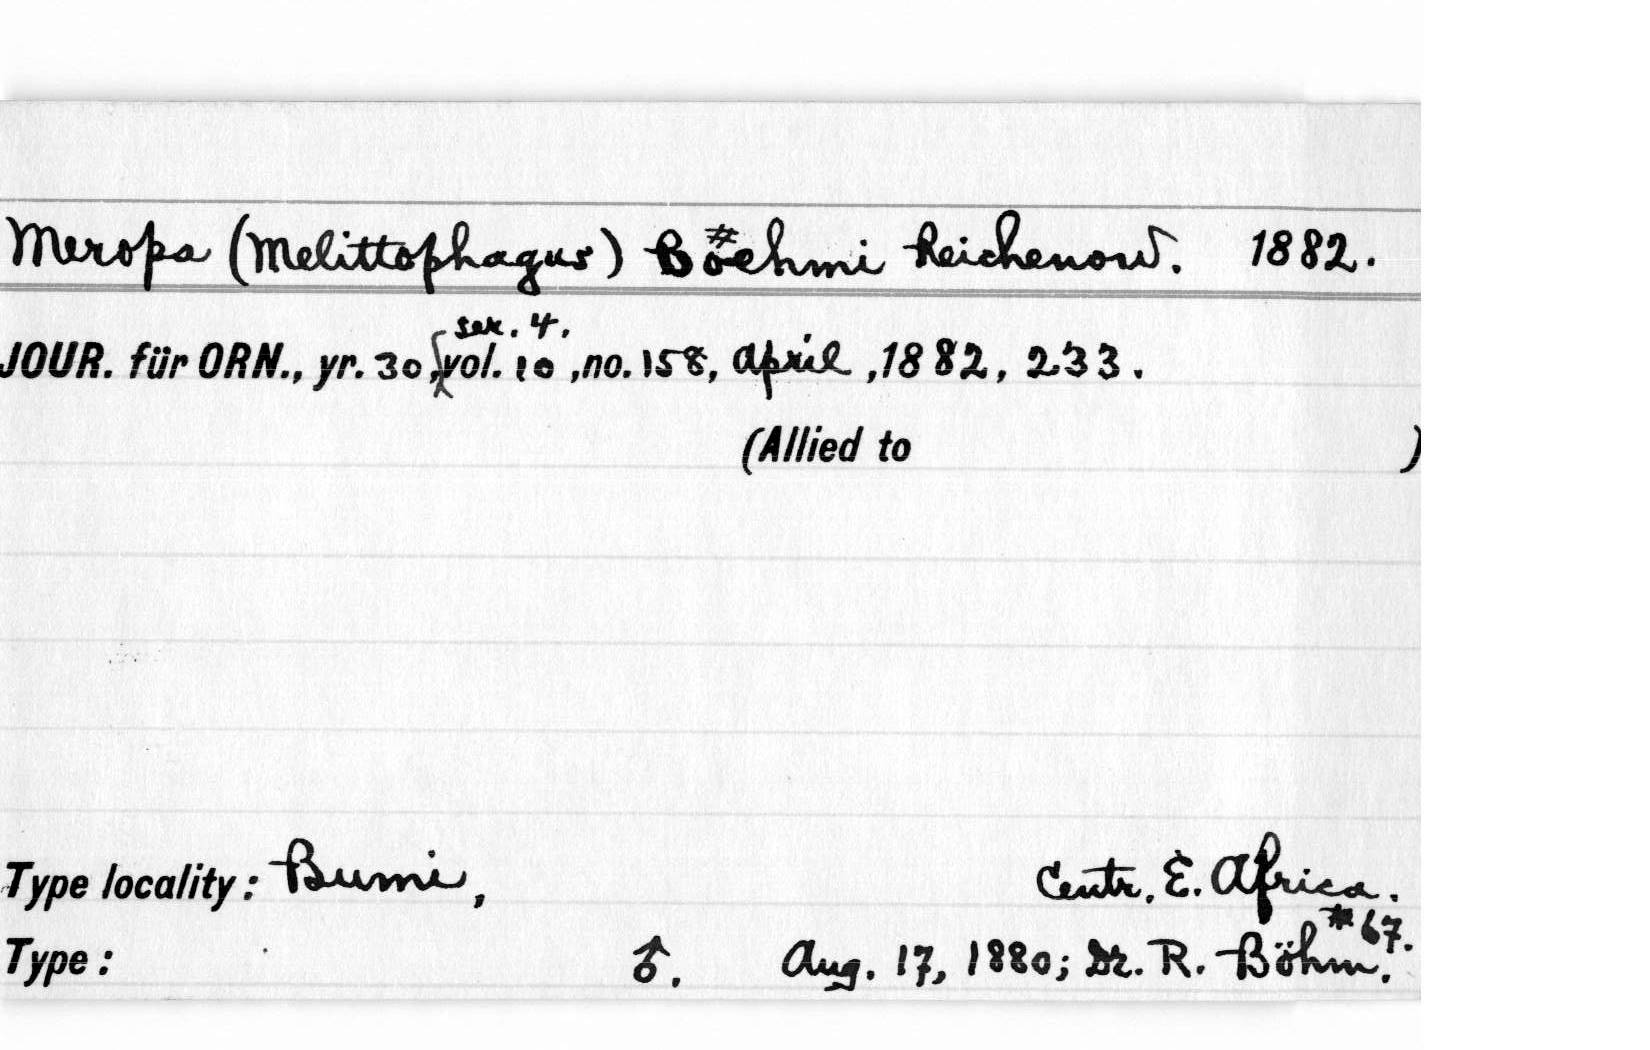 Merops (Melittophagus) Böehmi Reichenow. 1882.
#
ser. 4.
JOUR. für ORN., yr. 30, vol. 10, no. 158, April, 1882, 233.
(Allied to )
Type locality: Bumi, Centr. E. Africa.
#67.
Type: ♂. Aug. 17, 1880; Dr. R. Böhm.